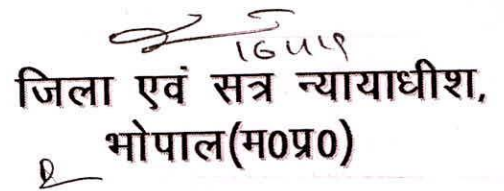 जिला एवं सत्र न्यायाधीश,
भोपाल(म०प्र०)